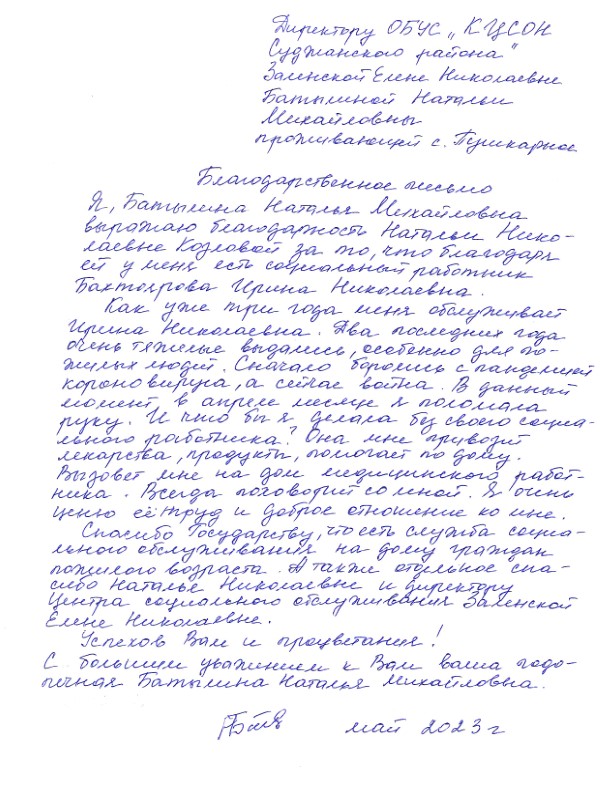 Директору ОБУС „КЦСОН
Суджанского района"
Заленской Елене Николаевне
Батылиной Натальи
Михайловны
проживающей с. Пушкарное
Благодарственное письмо
Я, Батылина Наталья Михайловна
выражаю благодарность Натальи Нико-
лаевне Козловой за то, что благодаря
ей у меня есть социальный работник
Бахтоярова Ирина Николаевна.
Как уже три года меня обслуживает
Ирина Николаевна. Два последних года
очень тяжелые выдались, особенно для по-
жилых людей. Сначало боролись с пандемией
короновируса, а сейчас война. В данный
момент в апреле месяце я поломала
руку. И что бы я делала без своего социа-
льного работника? Она мне привозит
лекарства, продукты, помогает по дому.
Вызовет мне на дом медицинского работ-
ника. Всегда поговорит со мной. Я очень
ценю её труд и доброе отношение ко мне.
Спасибо Государству, что есть служба социа-
льного обслуживания на дому граждан
пожилого возраста. А также отдельное спа-
сибо Наталье Николаевне и директору
Центра социального обслуживания Заленской
Елене Николаевне.
Успехов Вам и процветания!
С большим уважением к Вам ваша подо-
печная Батылина Наталья Михайловна.
май 2023 г